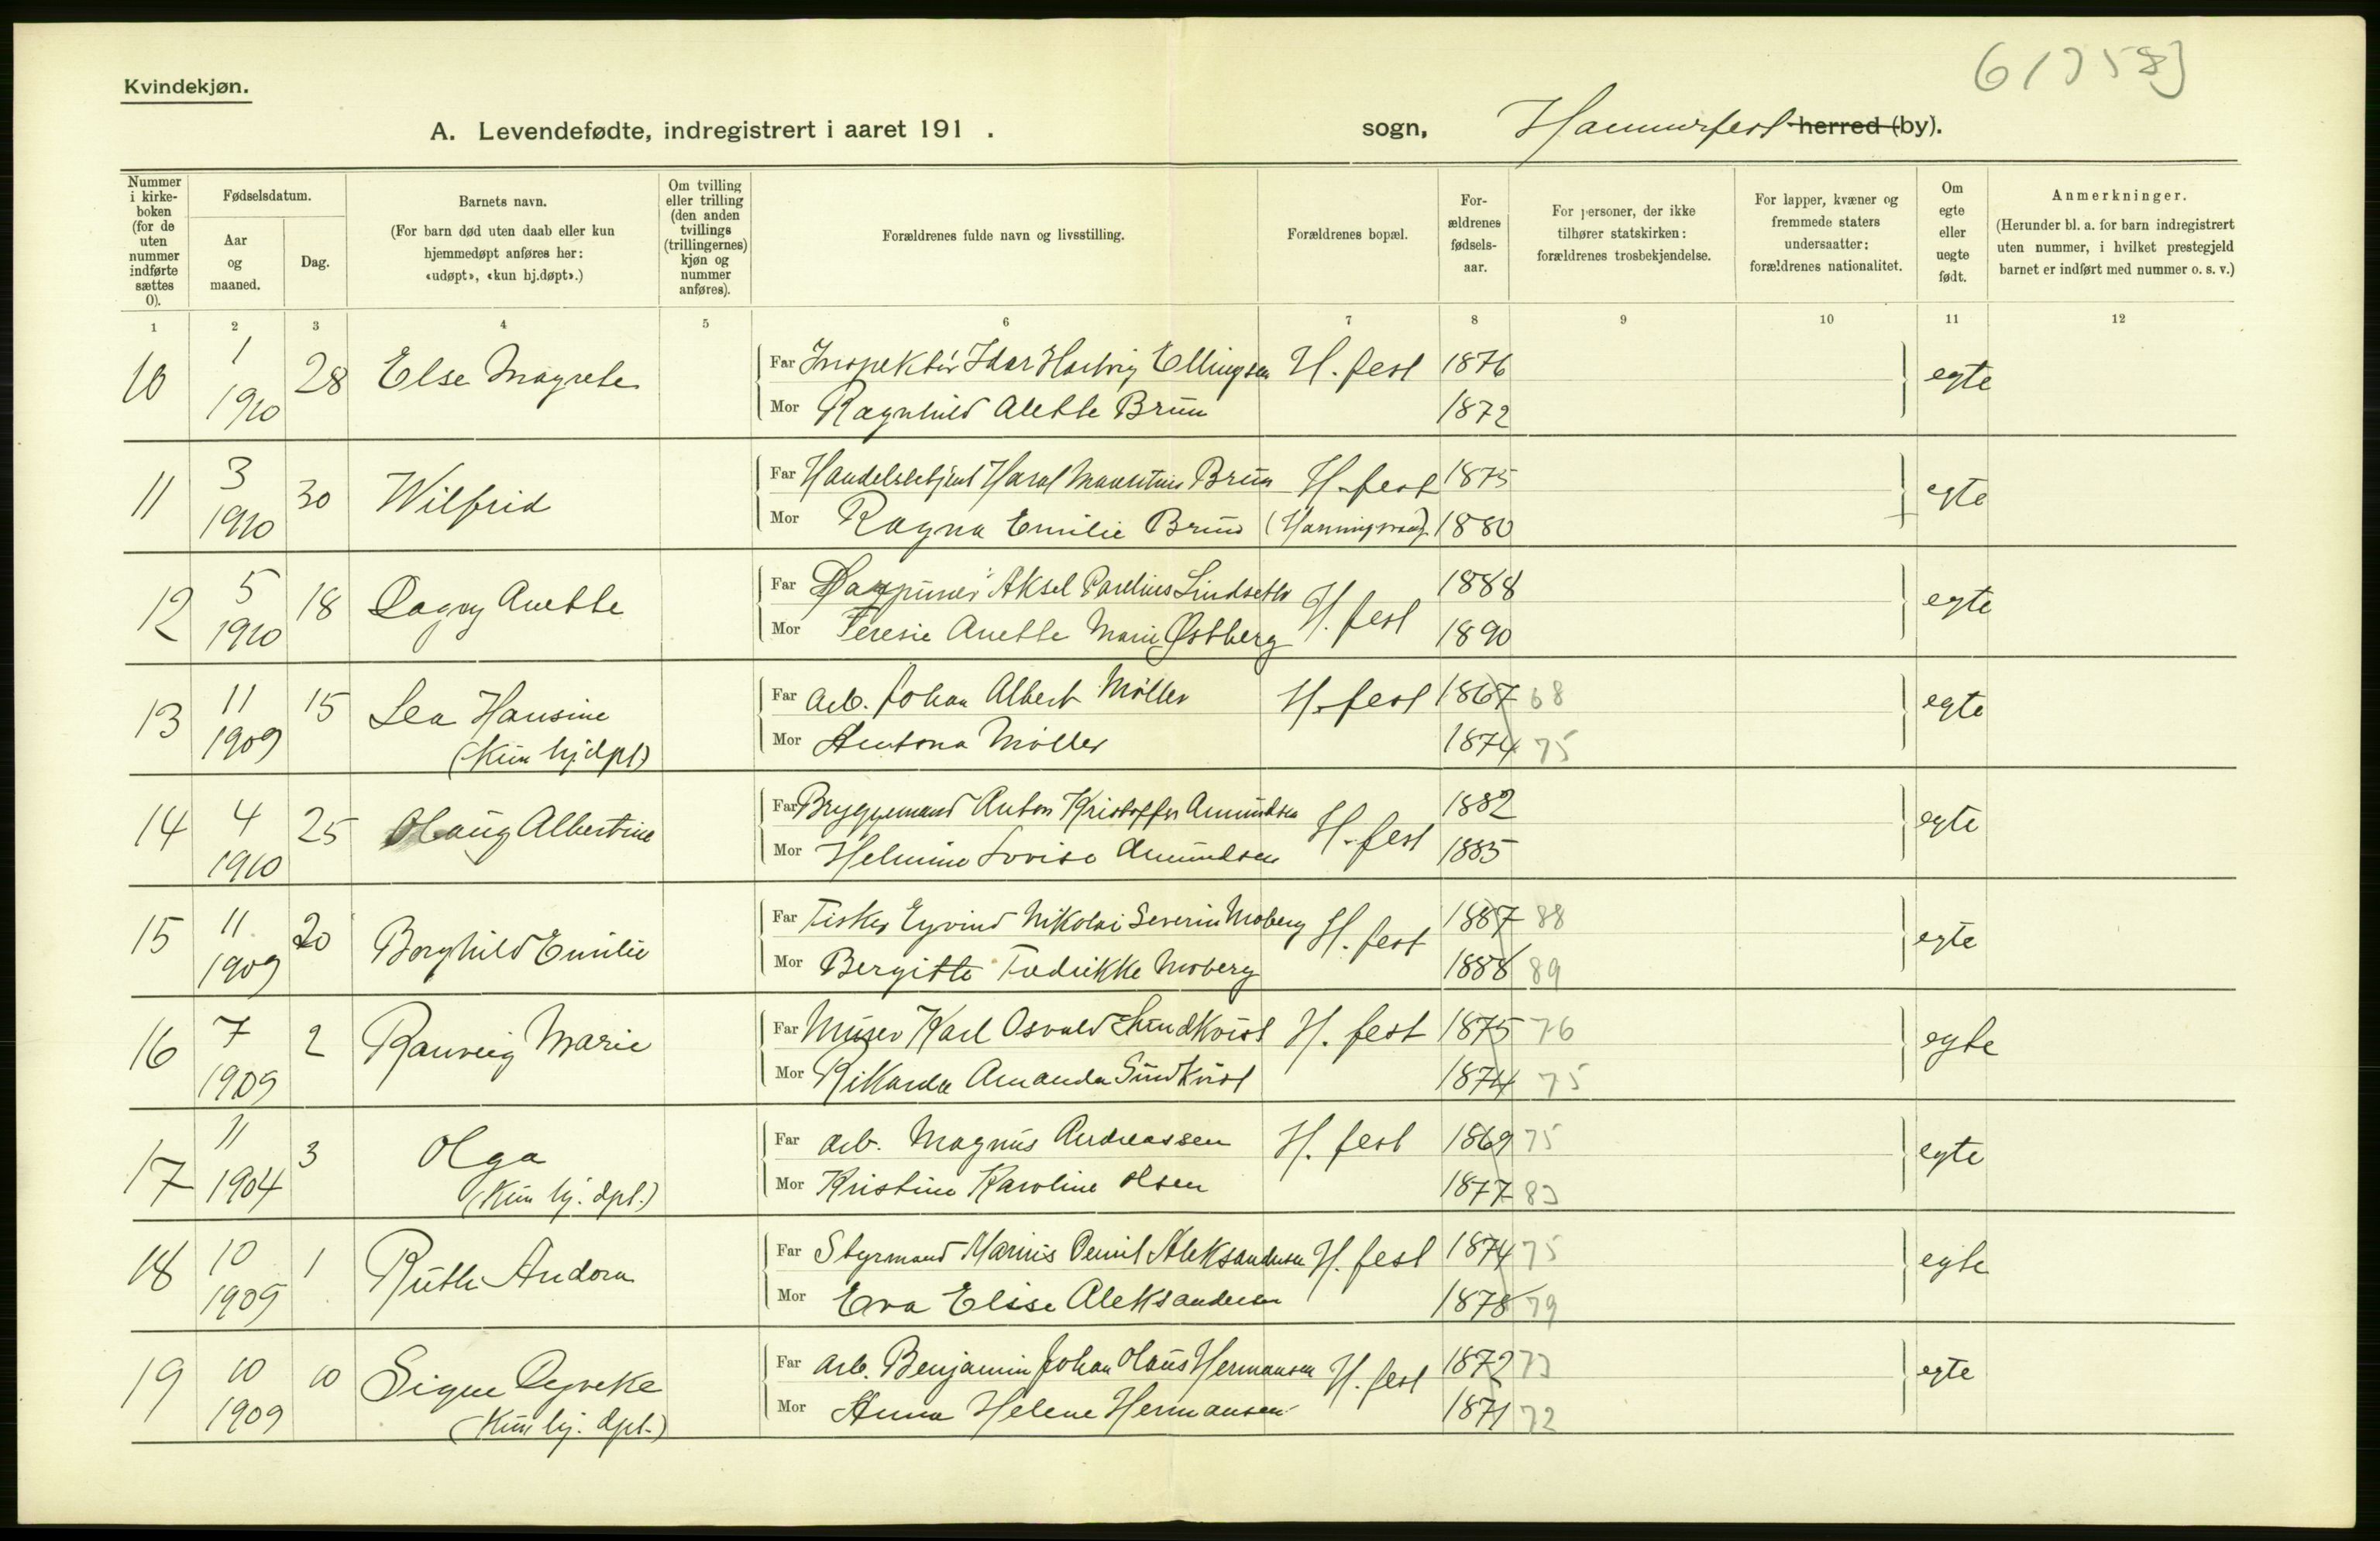 6/1758]
Kvindekjøn.
A. Levendefødte, indregistrert i aaret 191 .
sogn, Hammerfest herred (by).
Nummer i kirke-boken (for de uten nummer indførte sættes 0).
Fødselsdatum.
Aar og maaned.
Dag.
Barnets navn.
(For barn død uten daab eller kun hjemmedøpt anføres her: «udøpt», «kun hj.døpt».)
Om tvilling eller trilling (den anden tvillings (trillingernes) kjøn og nummer anføres).
Forældrenes fulde navn og livsstilling.
Forældrenes bopæl.
For-ældrenes fødsels-aar.
For personer, der ikke tilhører statskirken: forældrenes trosbekjendelse.
For lapper, kvæner og fremmede staters undersaatter: forældrenes nationalitet.
Om egte eller uegte født.
Anmerkninger.
(Herunder bl. a. for barn indregistrert uten nummer, i hvilket prestegjeld barnet er indført med nummer o. s. v.)
1 2 3 4 5 6 7 8 9 10 11 12
10 1 1910 28 Else Magrete Far Inspektör Idar Hartvig Ellingsen H.fest 1876 egte
Mor Ragnhild Alette Brun 1872
11 3 1910 30 Wilfrid Far Handelsbetjent Haral Mauritius Brun H.fest 1875 egte
Mor Ragna Emilie Brun (Honningsvaag) 1880
12 5 1910 18 Dagny Anette Far Aksel Parelius Lindseth H.fest 1888 egte
Mor Teresie Anette Marie Østberg 1890
13 11 1909 15 Lea Hansine Far Arb. Johan Albert Möller H.fest 1867 68 egte
(Kun hj.dpt) Mor Antona Möller 1874 75
14 4 1910 25 Olaug Albertine Far Bryggemand Anton Kristoffer Amundsen H.fest 1882 egte
Mor Helmine Lovise Amundsen 1885
15 11 1909 20 Borghild Emilie Far Fisker Eyvind Nikolai Severin Moberg H.fest 1887 88 egte
Mor Bergitte Fredrikke Moberg 1888 89
16 7 1909 2 Ranveig Marie Far Murer Karl Osvald Sundkvist H.fest 1875 76 egte
Mor Rikarda Amanda Sundkvist 1874 75
17 11 1904 3 Olga Far Arb. Magnus Andreassen H.fest 1869 75 egte
(Kun hj. dpt.) Mor Kristine Karoline Olsen 1877 83
18 10 1909 1 Ruth Andora Far Styrmand Marius Pemil Aleksandersen H.fest 1874 75 egte
Mor Eva Elise Aleksandersen 1878 79
19 10 1909 10 Signe Dyveke Far Arb. Benjamin Johan Olaus Hermansen H.fest 1872 73 egte
(Kun hj. dpt.) Mor Anna Helene Hermansen 1871 72